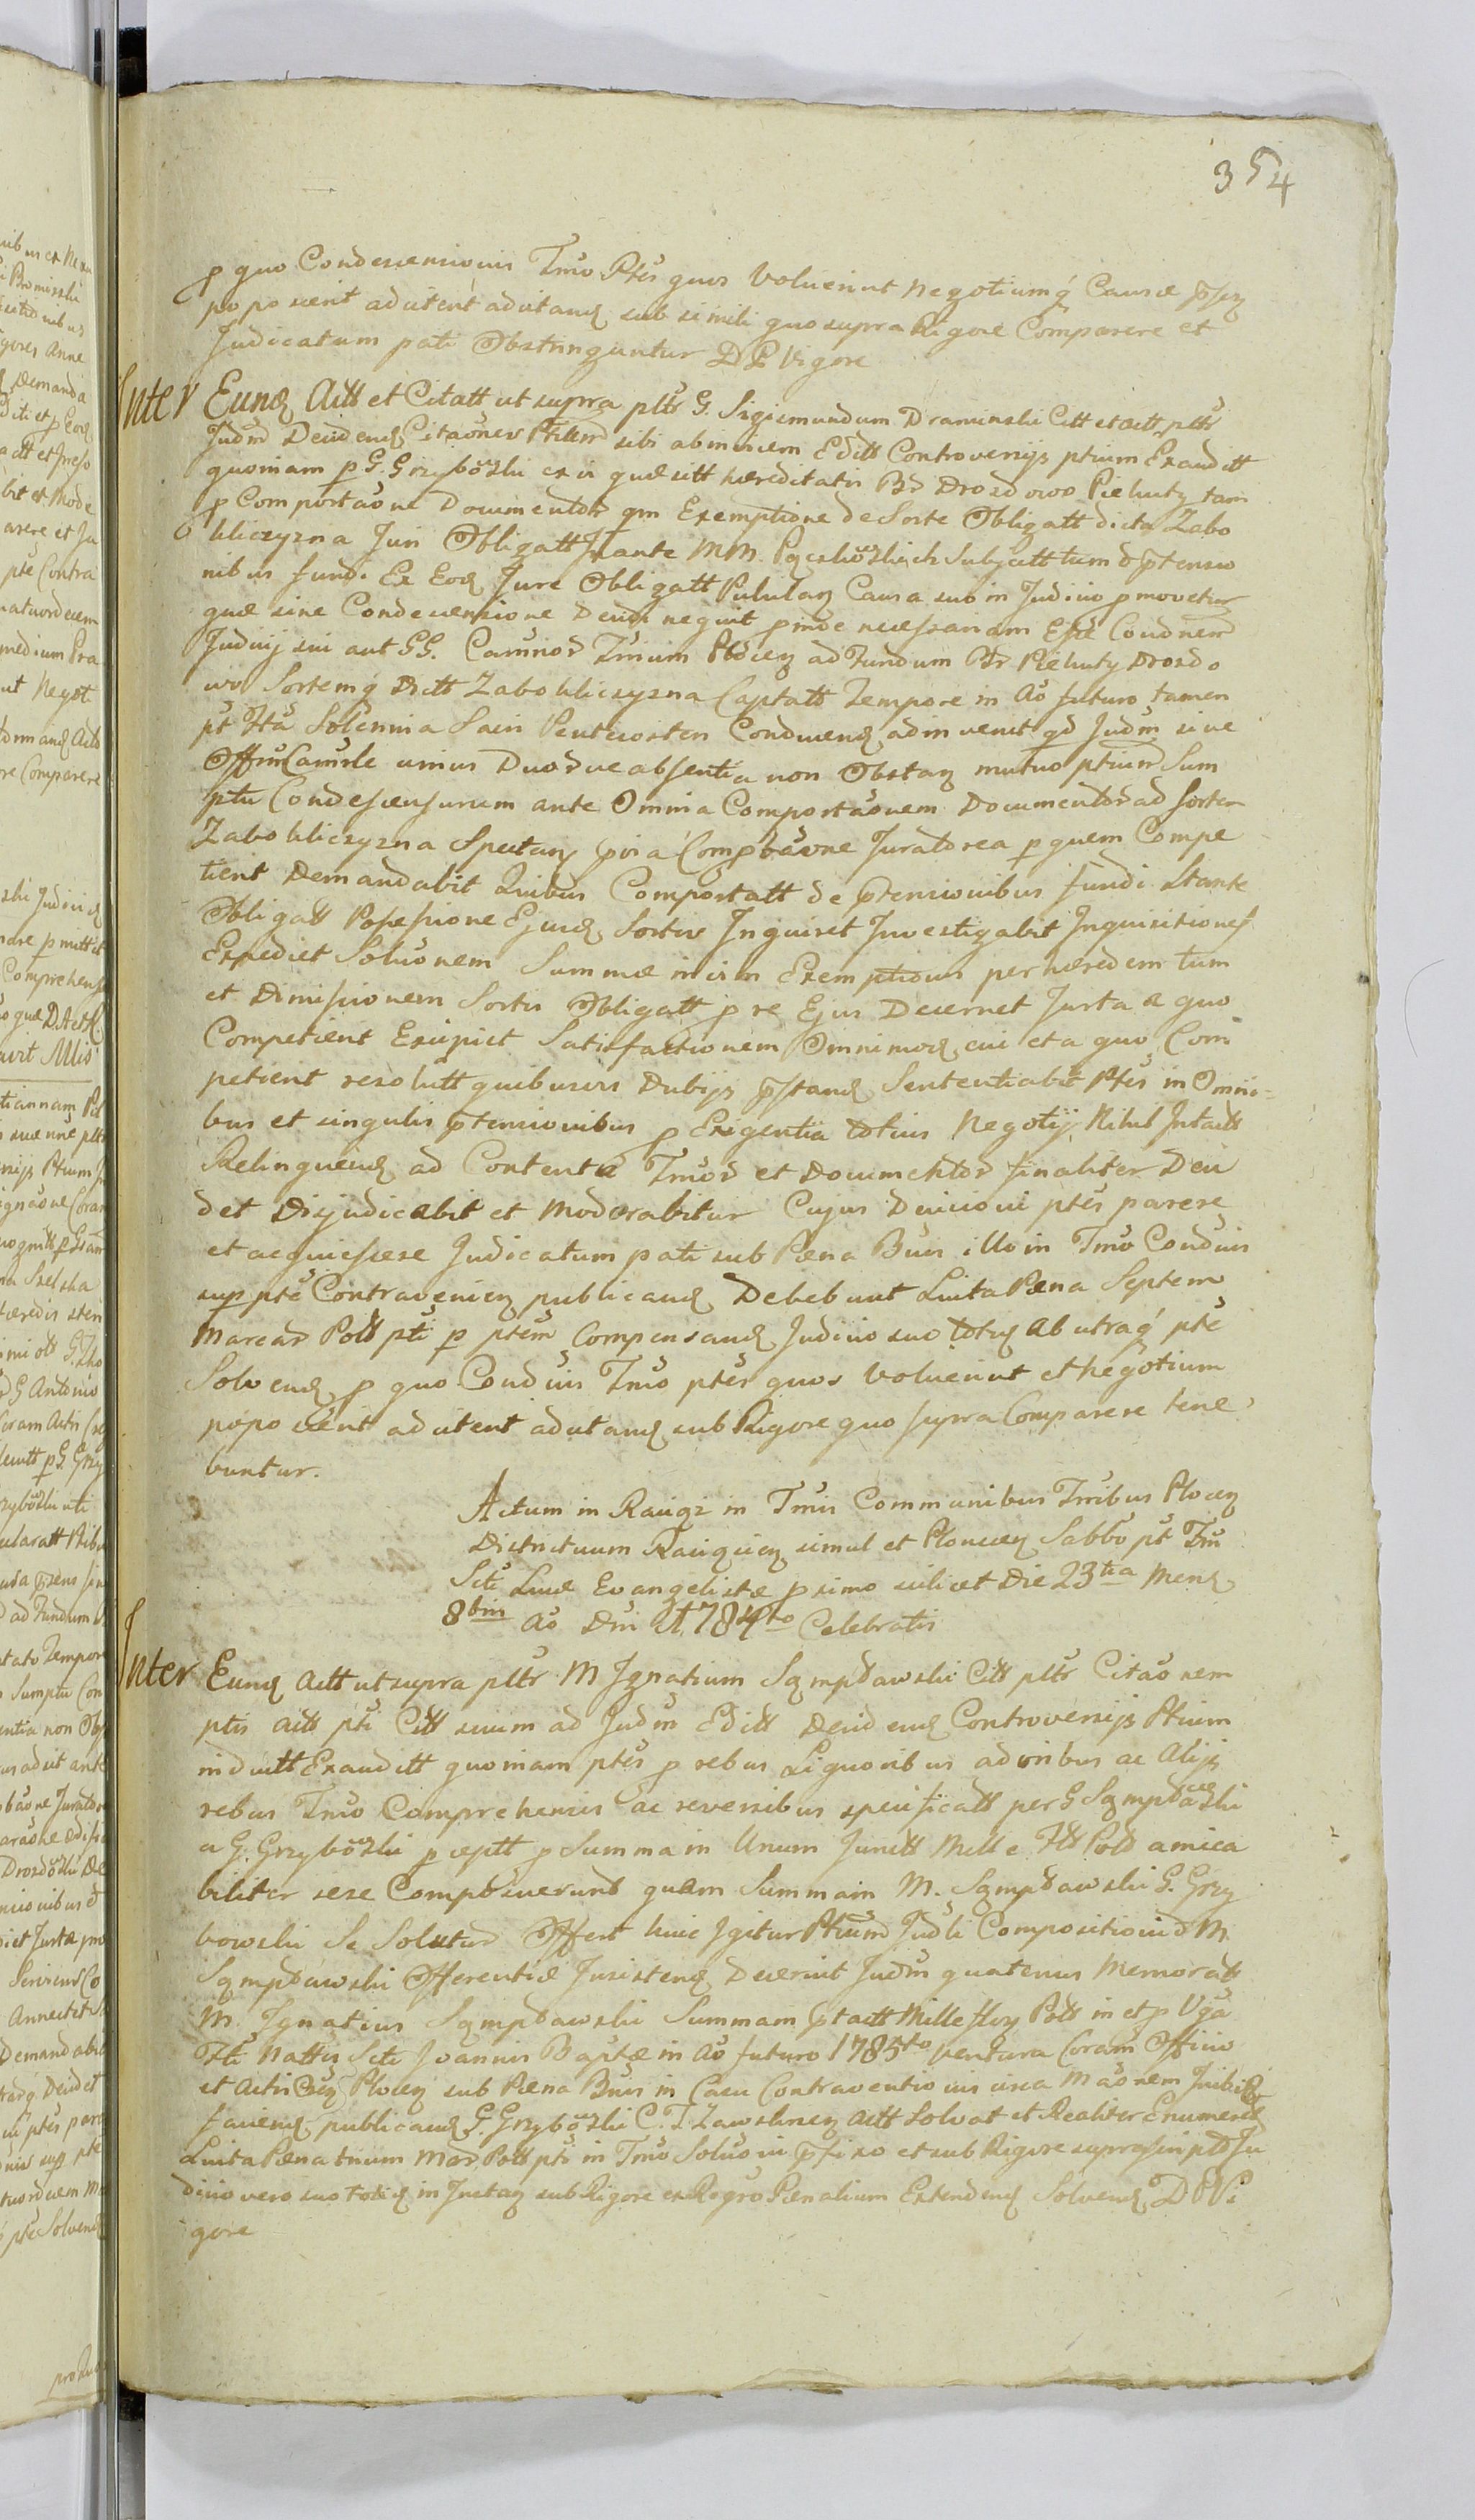 354
p quo Condescensionis Tmo Ptes quos Voluerint Negotiumq Causæ
po po scerit ad citent ad citand sub simili quo supra Rigore Comparere et
Judicatum pati Obstringuntur D P Vigore
Inter Eund Actt et Citatt ut supra pltr G. Sigismundum Draminski Citt et actt pltr
Judm Deciden Citaones Ptium sibi abinvicem Editt Controversijs ptium Exauditt
quoniam p G. Grzybowski ex vi quæsitt hæreditatis Br Drozdowo Piehuty tam
p Comportaone Documentor qm Exemptione de Sorte Obligatt dicta Zabo
kliczyzna Juri Obligatt Stante MM. Subjectt tum d ptensio
nibus fundi Ex Eod Jure Obligatt Pululan Causa suo in Judicio p movetur
quæ sine Condescensione Decidi nequit proinde necessariam Esse Condnem
Judicij sui aut GG. Camrior Tmium Plocen ad Fundum Br Piehuty Drozdo
wo Sortemq Dictt Zabokliczyzna Captatt Tempore in Ao futuro tamen
pt Fta Solennia Sacri Pentecosten Conducend adinvenit qd Judm sive
Offm Camrle unius Duorve absentia non Obstan mutuo ptium Sum
ptu Condescensurum ante Omnia Comportaonem Documentor ad Sortem
Zabokliczyzna Spectan pvia Comprobaone Juratorea p quem Compe
tient Demandabit Quibus Comportatt de ptensionibus fundi Stante
Obligatt Possessione Ejusd Sortis Inquiret Investigabit Inquisitiones
Expediet Soluonem Summæ in vim Exemptionis per hæredem tum
et Dimissionem Sortis Obligatt p re Ejus Decernet Jurta a quo
Competient Excipiet Satisfactionem Omnimod cui et a quo Com
petient resolutt quibusvis Dubijs pstand Sententiabit Ptes in Omni=
bus et singulis ptensionibus p Exigentia totius Negotij Nihil Intactt
Relinquend ad Contenta Tmor et Documentor finaliter Deci
det Dijudicabit et Moderabitur Cujus Decisioni ptes parere
et acquiescere Judicatum pati sub Pæna Bnis illo in Tmo Condnis
sup pte Contravenien publicand Debebunt Luita Pæna Septem
Marcar Poltt pti p ptem Compensand Judicio suo totid Ab utraq pte
Solvend p quo Condnis Tmo ptes quos Voluerint et Negotium
popo scerit ad citent ad citand sub Rigore quo supra Comparere tene
buntur.
Actum in Raciąż in Tmis Communibus Trribus Plocen
Districtuum Raciązien simul et Plonscen Sabbo pt Fm
Scti Lucæ Evangelistæ pximo scilicet Die 23tia Mens
8bris Ao Dni 1784to Celebratis
Inter Eund Actt ut supra pltr M Ignatium Sąmpławski Citt pltr Citaonem
ptis actt pti Citt suum ad Judm Editt Decidend Controversijs Ptium
induitt Exauditt quoniam ptes p rebus Liquoribus ac Alijs
rebus Tmo Comprehensis ac reversibus specificatt per G Sąmpławski
a G. Grzybowski p ceptt p Summa in Unum Junctt Mille Flt Polt amica
biliter sese Composuerunt quam Summam M. Sąmpławski G. Grzy
bowski Se Solutur Offert huic Igitur Ptium Judli Compositioni M.
Sąmpławski Offerentiæ Insistend Decernit Judm quatenus Memoratt
M. Ignatius Sąmpławski Summam ptactt Mille flor Poltt in et p Vga
Fti Nattis Scti Joannis Baptæ in Ao futuro 1785to Ventura Coram Officio
et Actis Plocen sub Pæna Bnis in Casu Contraventionis circa Maonem
faciend publicand G. Grzybowski C. T. Zawskrzen actt Solvat et Realiter Enumeret
Luita Pæna trium Mar Poltt pti in Tmo Soluoni pfixo et sub Rigore suprascripto Ju
dicio vero suo totid in Instan sub Rigore ex Regro Pænalium Extendend Solvend D P Vi
gore